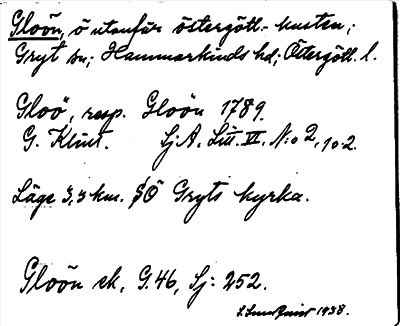 Gloön, ö utanför östergötl.-kusten;
Gryt sn; Hammarkinds hd; Östergötl. l.
Gloö, resp. Gloön 1789.
G. Klint. Sj.A. Litt. VI. N:o 2, 10.2.
Läge 3,5 km. SÖ Gryts kyrka.
Gloön ek, G.46, Sj: 252.
1938.